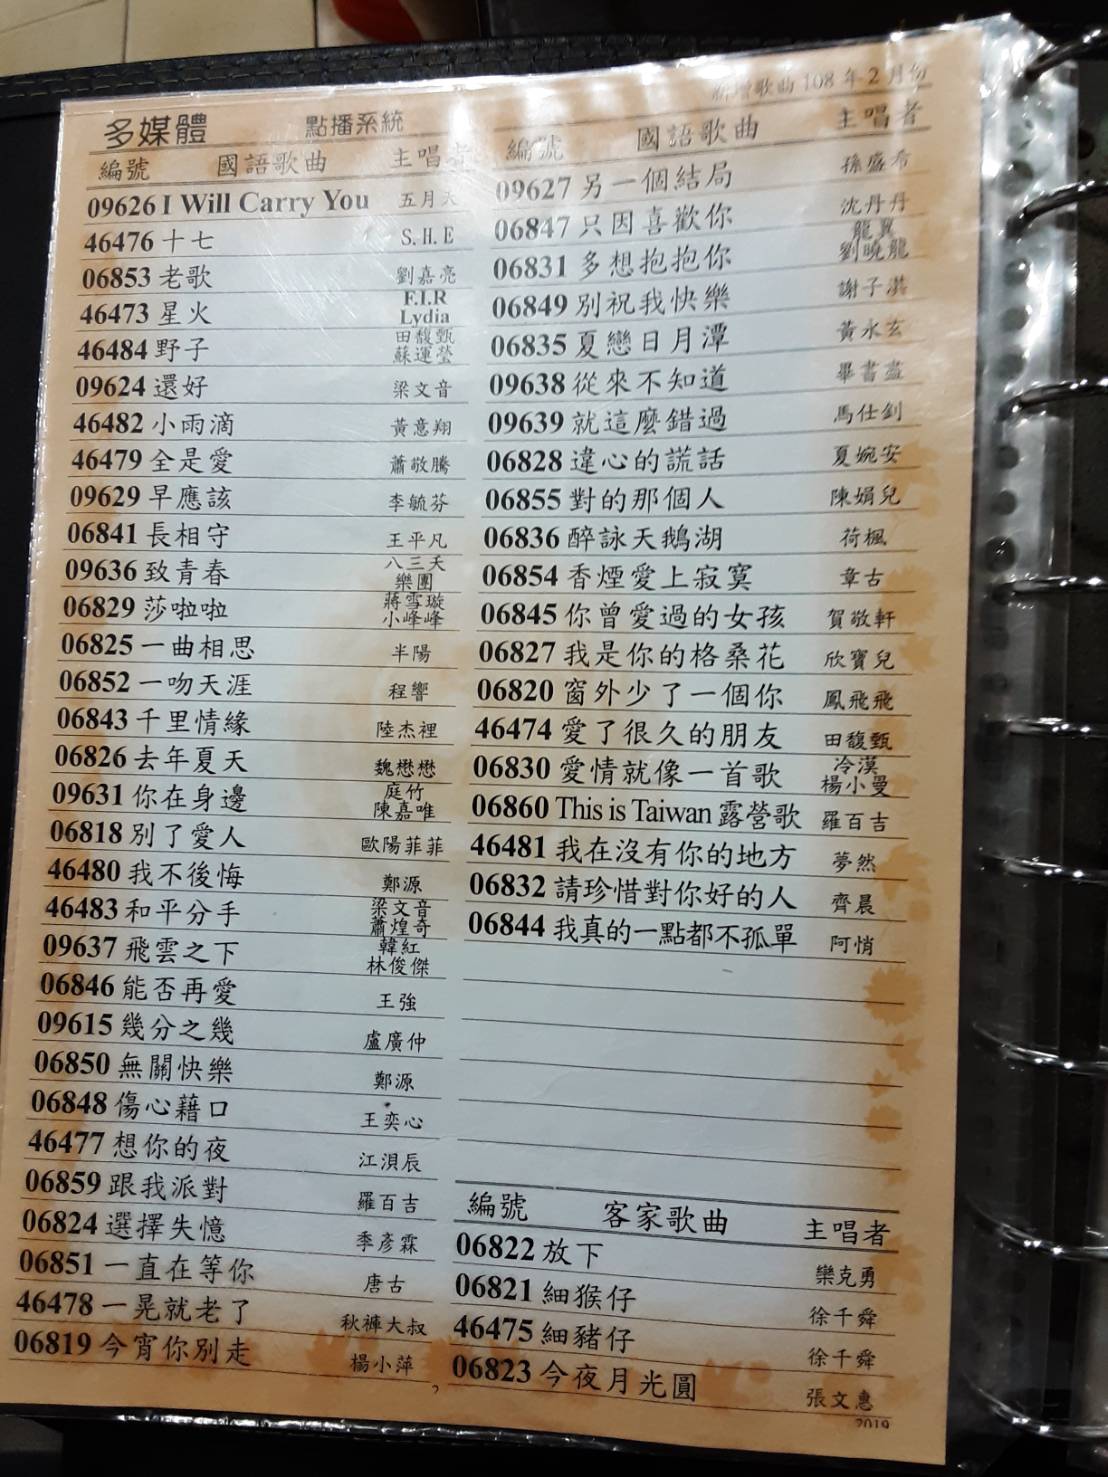 新增歌曲108年2月份
多媒體 點播系統
編號 國語歌曲 主唱者
09626 I Will Carry You 五月天
46476 十七 S.H.E
06853 老歌 劉嘉亮
46473 星火 F.I.R Lydia
46484 野子 田馥甄 蘇運瑩
09624 還好 梁文音
46482 小雨滴 黃意翔
46479 全是愛 蕭敬騰
09629 早應該 李毓芬
06841 長相守 王平凡
09636 致青春 八三夭樂團
06829 莎啦啦 蔣雪璇 小峰峰
06825 一曲相思 半陽
06852 一吻天涯 程響
06843 千里情緣 陸杰裡
06826 去年夏天 魏懋懋
09631 你在身邊 庭竹 陳嘉唯
06818 別了愛人 歐陽菲菲
46480 我不後悔 鄭源
46483 和平分手 梁文音 蕭煌奇
09637 飛雲之下 韓紅 林俊傑
06846 能否再愛 王強
09615 幾分之幾 盧廣仲
06850 無關快樂 鄭源
06848 傷心藉口 王奕心
46477 想你的夜 江浿辰
06859 跟我派對 羅百吉
06824 選擇失憶 季彥霖
06851 一直在等你 唐古
46478 一晃就老了 秋褲大叔
06819 今宵你別走 楊小萍
編號 國語歌曲 主唱者
09627 另一個結局 孫盛希
06847 只因喜歡你 沈丹丹
06831 多想抱抱你 龍翼 劉曉龍
06849 別祝我快樂 謝子淇
06835 夏戀日月潭 黃永玄
09638 從來不知道 畢書盡
09639 就這麼錯過 馬仕釗
06828 違心的謊話 夏婉安
06855 對的那個人 陳娟兒
06836 醉詠天鵝湖 荷楓
06854 香煙愛上寂寞 章古
06845 你曾愛過的女孩 賀敬軒
06827 我是你的格桑花 欣寶兒
06820 窗外少了一個你 鳳飛飛
46474 愛了很久的朋友 田馥甄
06830 愛情就像一首歌 冷漠 楊小曼
06860 This is Taiwan 露營歌 羅百吉
46481 我在沒有你的地方 夢然
06832 請珍惜對你好的人 齊晨
06844 我真的一點都不孤單 阿悄
編號 客家歌曲 主唱者
06822 放下 欒克勇
06821 細猴仔 徐千舜
46475 細豬仔 徐千舜
06823 今夜月光圓 張文惠
2019